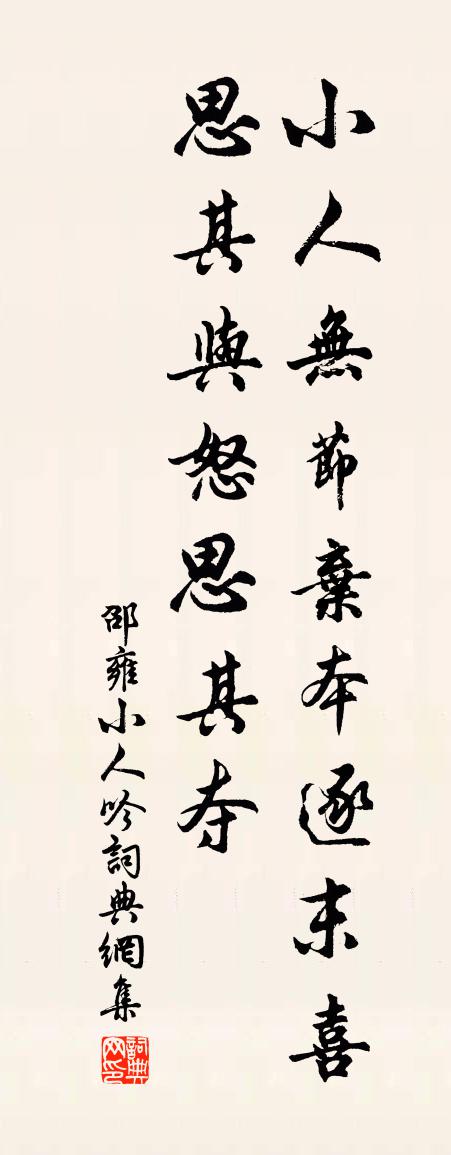 小人無節棄本逐末喜
思其與怒思其奪
邵雍小人吟詞典網集
詞典网印